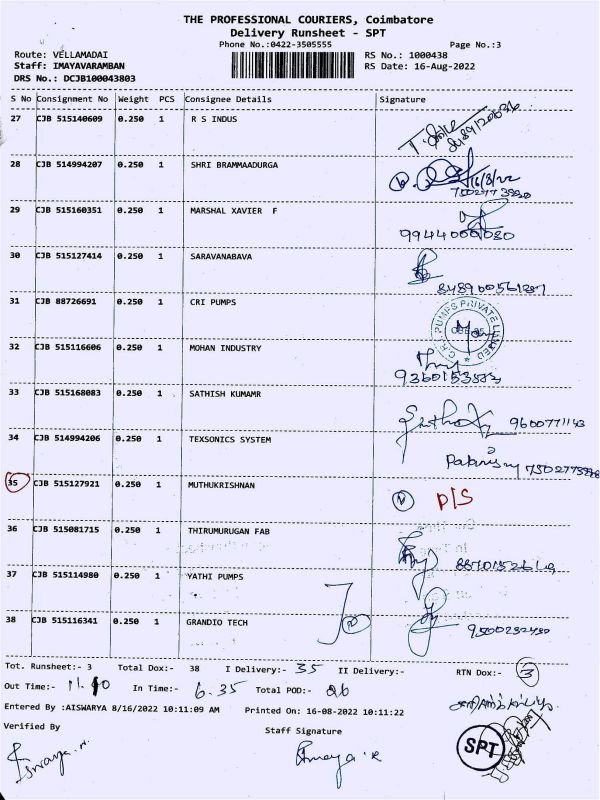 THE PROFESSIONAL COURIERS, Coimbatore
Delivery Runsheet - SPT
Phone No.:0422-3505555 Page No.:3
Route: VELLAMADAI RS No.: 1000438
Staff: IMAYAVARAMBAN RS Date: 16-Aug-2022
DRS No.: DCJB100043803
S No Consignment No Weight PCS Consignee Details Signature
27 CJB 515140609 0.250 1 R S INDUS
28 CJB 514994207 0.250 1 SHRI BRAMMAADURGA 16/8/22
29 CJB 515160351 0.250 1 MARSHAL XAVIER F
9944000030
30 CJB 515127414 0.250 1 SARAVANABAVA
31 CJB 88726691 0.250 1 CRI PUMPS C.R.I. PUMPS PRIVATE LIMITED
32 CJB 515116606 0.250 1 MOHAN INDUSTRY
33 CJB 515168083 0.250 1 SATHISH KUMAMR 9600771143
34 CJB 514994206 0.250 1 TEXSONICS SYSTEM
35 CJB 515127921 0.250 1 MUTHUKRISHNAN N D/S
36 CJB 515081715 0.250 1 THIRUMURUGAN FAB
37 CJB 515114980 0.250 1 YATHI PUMPS
38 CJB 515116341 0.250 1 GRANDIO TECH 9500232480
Tot. Runsheet:- 3 Total Dox:- 38 I Delivery:- 35 II Delivery:- RTN Dox:- 3
Out Time:- 11.10 In Time:- 6.35 Total POD:- 26
Entered By :AISWARYA 8/16/2022 10:11:09 AM Printed On: 16-08-2022 10:11:22
Verified By Staff Signature
SPT